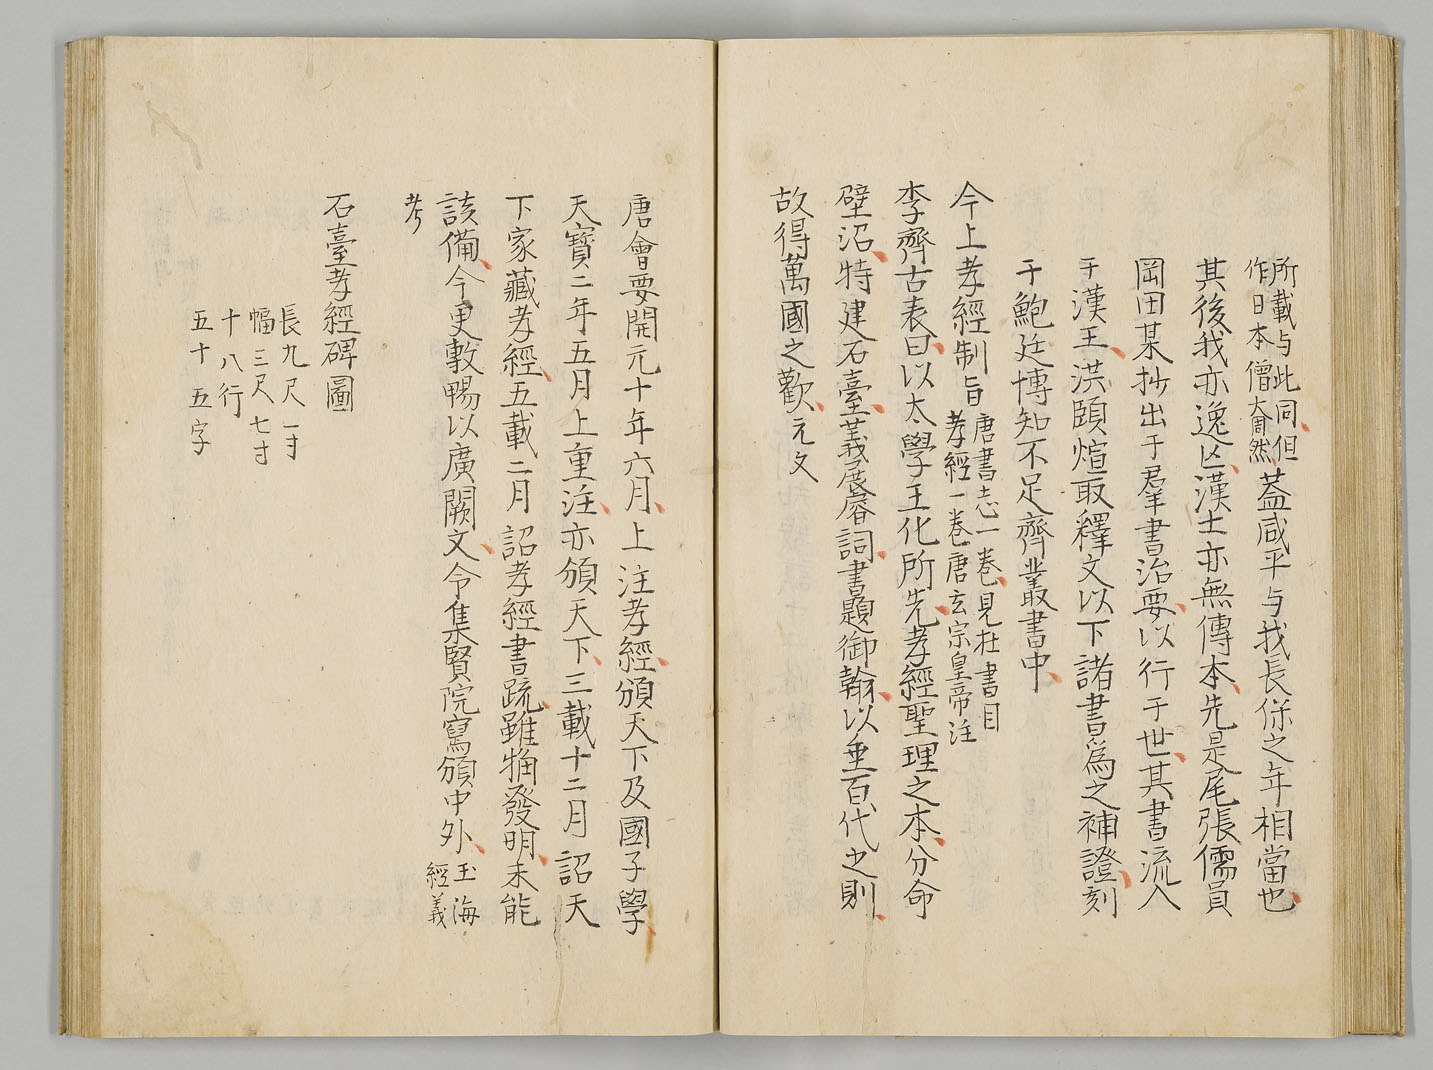 所載与此同但
作日本僧奝然
蓋咸平与我長保之年相當也
其後我亦逸亾漢土亦無傳本先是尾張儒員
岡田某抄出于羣書治要以行于世其書流入
于漢王洪頤煊取釋文以下諸書爲之補證刻
于鮑廷博知不足齊叢書中
今上孝經制旨
唐書志一卷見杜書目
孝經一卷唐玄宗皇帝注
李齊古表曰以太學王化所先孝經聖理之本分命
壁沼特建石臺義展睿詞書題御翰以垂百代之則
故得萬國之歡元文
唐會要開元十年六月上注孝經頒天下及國子學
天寶二年五月上重注亦頒天下三載十二月詔天
下家藏孝經五載二月詔孝經書疏雖粗發明未能
該備今更敷暢以廣闕文令集賢院寫頒中外
玉海
經義
考
石臺孝經碑圖
長九尺一寸
幅三尺七寸
十八行
五十五字